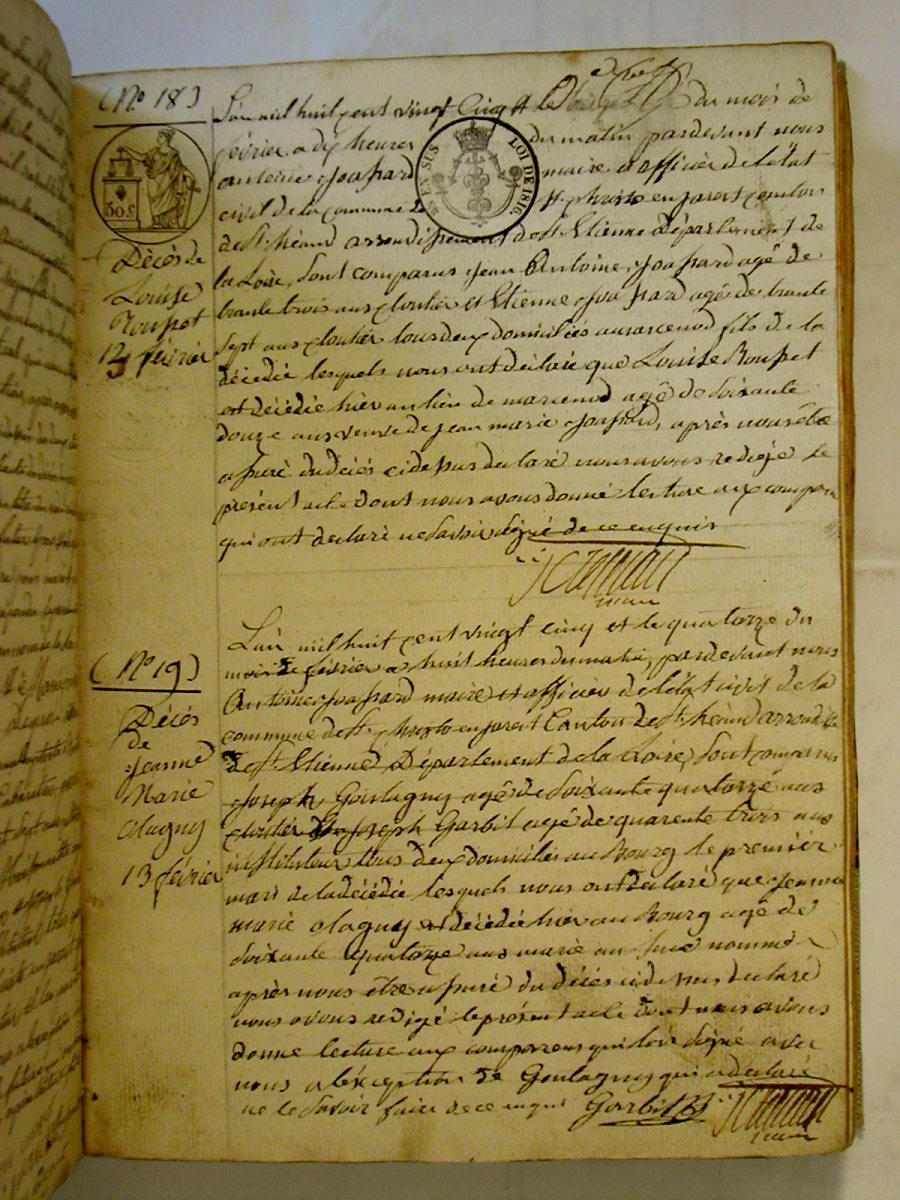 (No 18)
L'an mil huit cent vingt cinq et le du mois de
février a dix heures du matin pardevant nous
antoine Joassard maire et officier de l'état
civil de la commune de St. phristo en jarest canton
de St. héand arrondissement de St. Etienne Département de
la Loire, sont comparus Jean Antoine Joassard agé de
trante trois ans cloutier et Etienne Joassard agé de trante
sept ans cloutier tous deux domiciliés au marcenod fils de la
décédée lesquels nous ont déclaré que Louise Rousset
est décédée hier au lieu de marcenod agé de soixante
douze ans veuve de jean marie Joassard, après nous être
assuré du décés cidessus declaré nous avons redigé le
présent acte dont nous avons donné lecture aux comparu
qui ont declaré ne savoir signé de ce enquis
maire
Décès de
Louise
Rousset
12 février
50 c
EN SUS
LOI DE 1816
(No 19)
L'an mil huit cent vingt cinq et le quatorze du
mois de février a huit heures du matin, pardevant nous
Antoine Joassard maire et officier de l'état civil de la
commune de St. phristo en jarest Canton de St. héand arrond.
de St. Etienne Département de la Loire, sont comparus
Joseph Goutagny agé de soixante quatorze ans
cloutier & Joseph Garbit agé de quarente trois ans
instituteur tous deux domiciliés au Bourg le premier
mari de la décédée lesquels nous ont declaré que Jeanne
marie olagny est décédée hier au Bourg agé de
soixante quatorze ans marié au susd nommé
après nous être assuré du décés cidessus declaré
nous avons redigé le présent acte dont nous avons
donné lecture aux comparens qui l'ont signé avec
nous a l'éxception de Goutagny qui a declaré
ne le savoir faire de ce enqui Garbit
maire
Décès
de
Jeanne
Marie
olagny
13 février